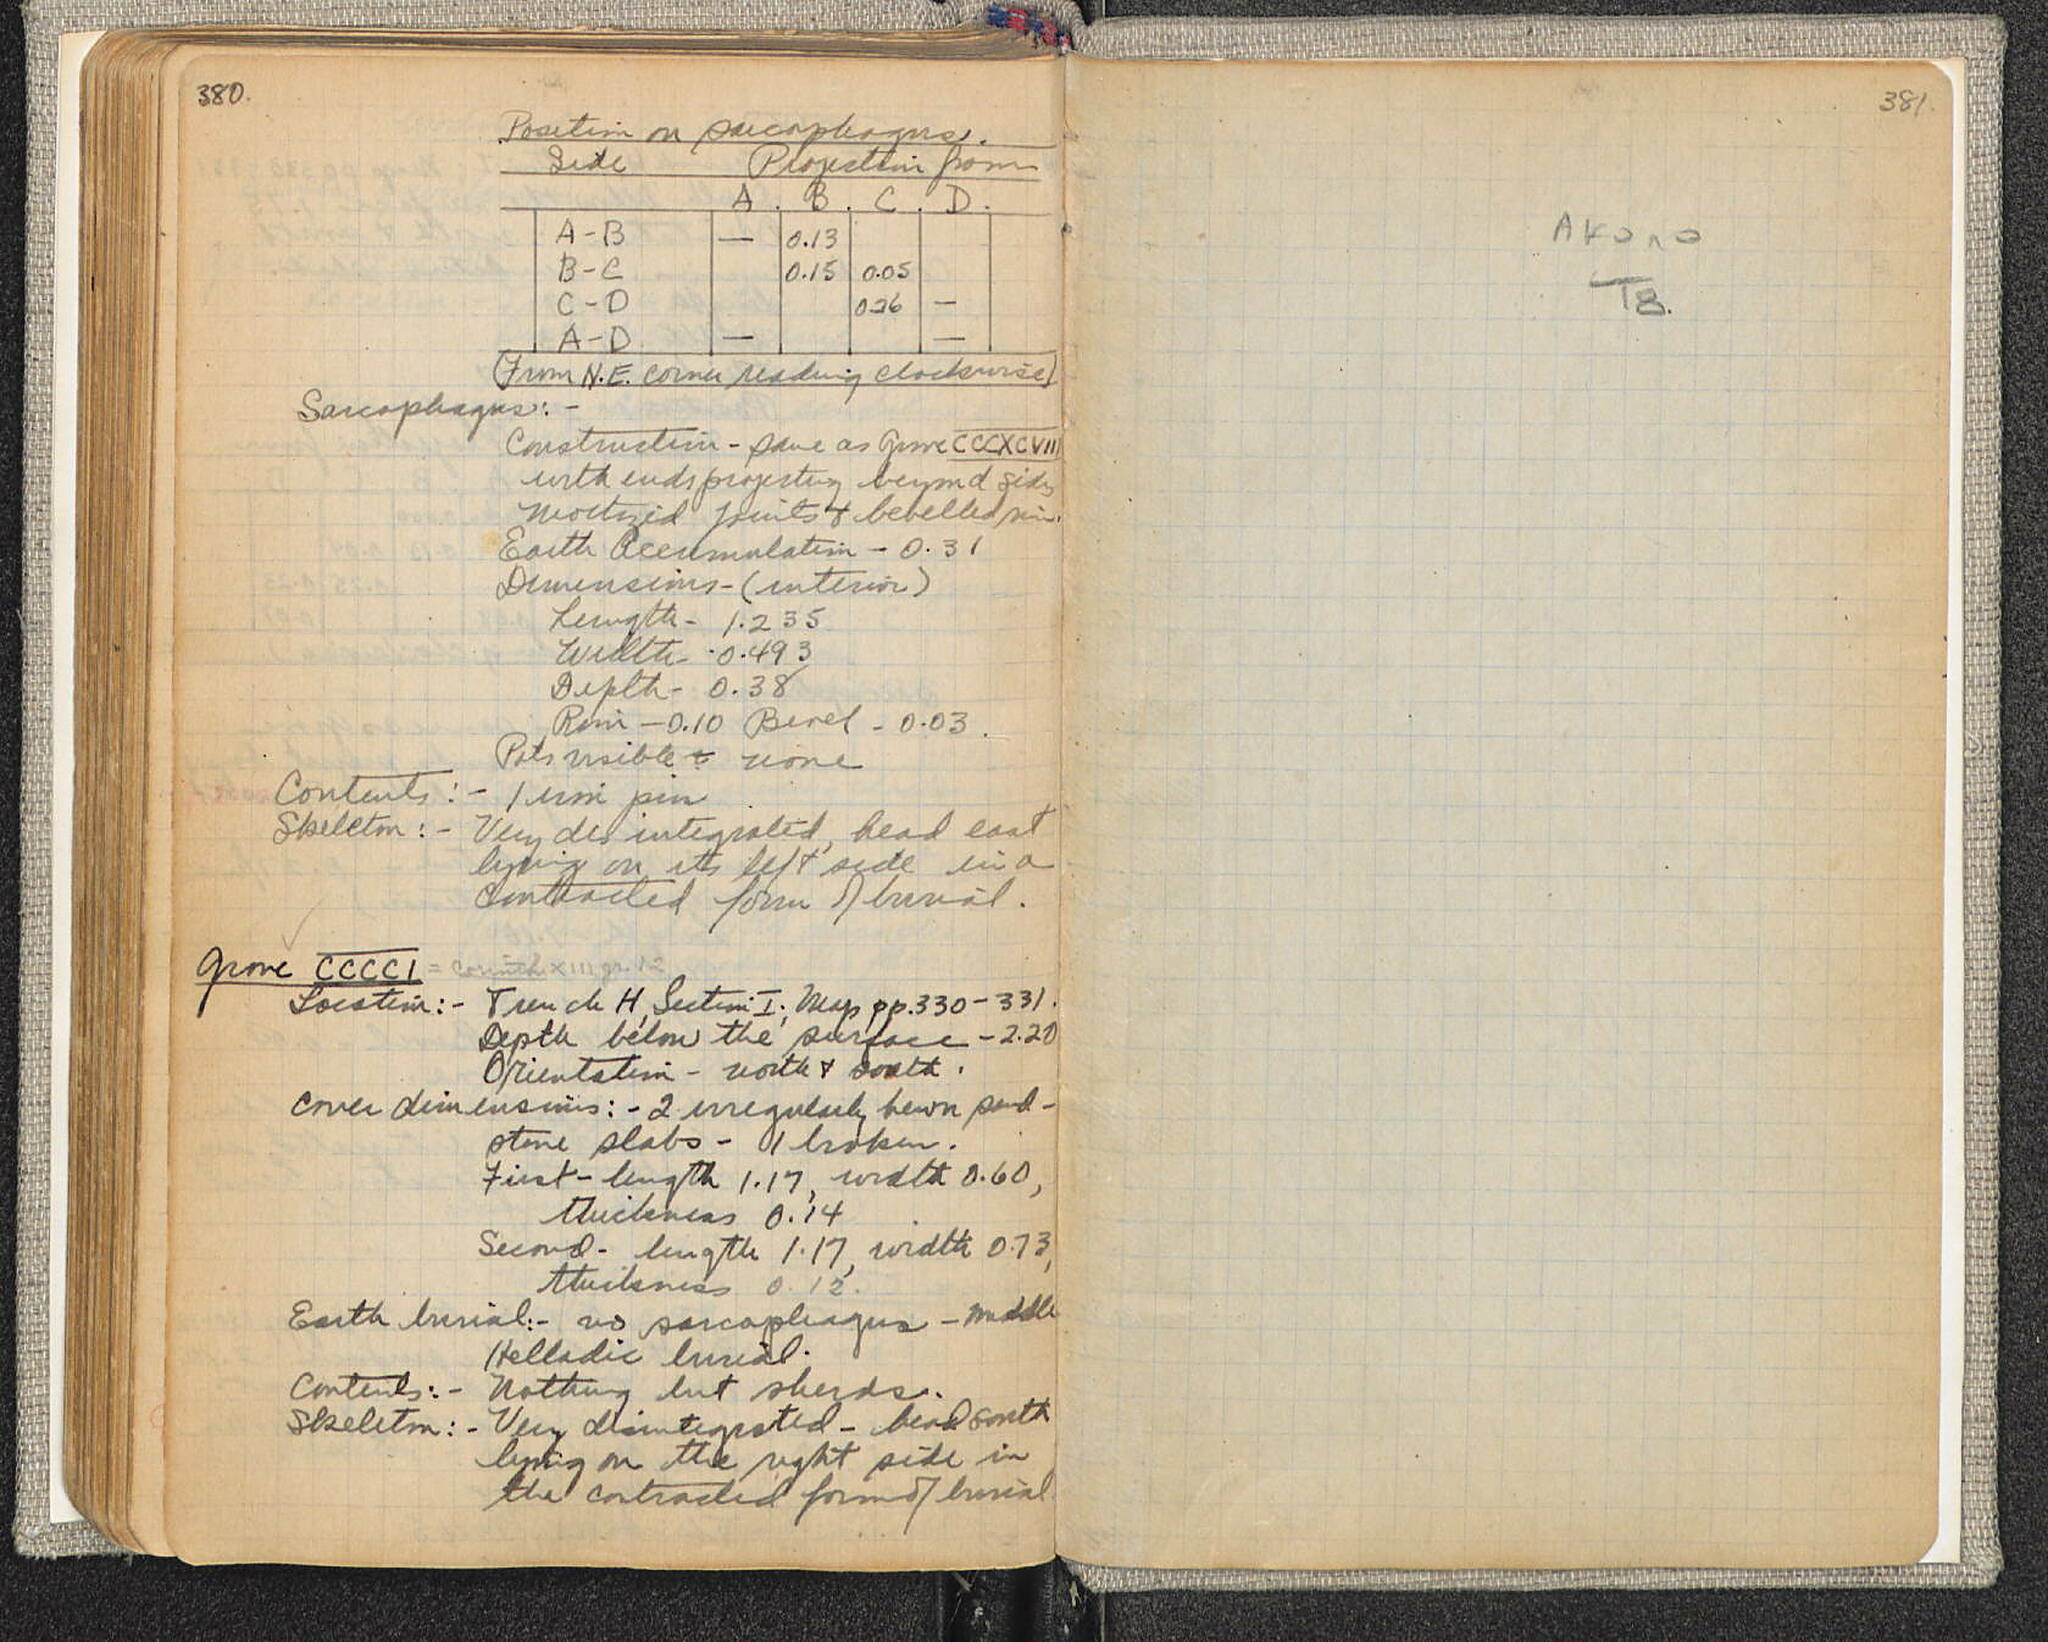 380.
Position on sarcophagus.
Side Projection from
A. B. C. D.
A-B — 0.13
B-C 0.15 0.05
C-D 0.26 —
A-D — —
(From N.E. corner reading clockwise)
Sarcophagus:-
Construction - same as Grave CCCXCVIII
with ends projecting beyond sides
mortized joints & bevelled rim.
Earth Accumulation - 0.31
Dimensions - (interior)
Length - 1.235
Width - 0.493
Depth - 0.38
Rim - 0.10 Bevel - 0.03.
Pots visible - none
Contents:- 1 iron pin
Skeleton:- Very disintegrated, head east
lying on its left side in a
contracted form of burial.
Grave CCCCI = Corinth XIII gr. 12
Location:- Trench H, Section I; Map pp. 330-331.
Depth below the surface - 2.20
Orientation - north & south.
Cover dimensions:- 2 irregularly hewn sand-
stone slabs - 1 broken.
First - length 1.17, width 0.60,
thickness 0.14
Second - length 1.17, width 0.73,
thickness 0.12.
Earth burial:- no sarcophagus - Middle
Helladic burial.
Contents:- Nothing but sherds.
Skeleton:- Very disintegrated - head south
lying on the right side in
the contracted form of burial
381.
T8.